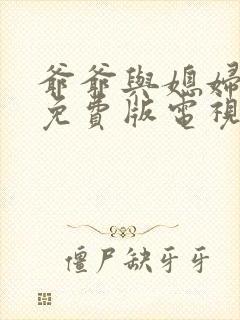 爺爺與媳婦
免費版電視
僵尸缺牙牙